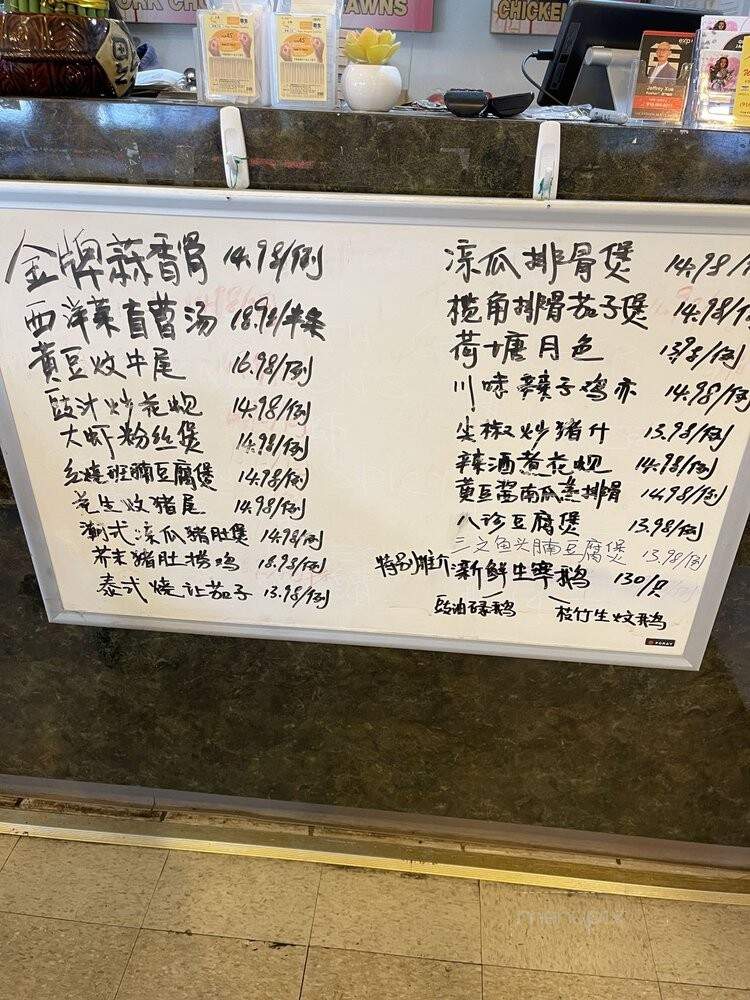 ORK CHO
AWNS
CHICKEN
exp
Jeffrey Xue
金牌蒜香骨 14.98/例
西洋菜直曹汤 18.98/
黄豆炆牛尾 16.98/例
豉汁炒花蚬 14.98/例
大虾粉丝煲 14.98/例
红烧班腩豆腐煲 14.98/例
花生炆猪尾 14.98/例
潮式凉瓜猪肚煲 14.98/例
芥末猪肚捞鸡 18.98/例
泰式烧让茄子 13.98/例
凉瓜排骨煲 14.98/
榄角排骨茄子煲 14.98/例
荷塘月色 13.98/例
川味辣子鸡亦 14.98/例
尖椒炒猪什 13.98/例
辣酒煮花蚬 14.98/例
黄豆酱南瓜蒸排骨 14.98/例
八诊豆腐煲 13.98/例
三文鱼头腩豆腐煲 13.98/例
特别推介:新鲜生宰鹅 130/只
豉油碌鹅 枝竹生炆鹅
FORAY
menupix